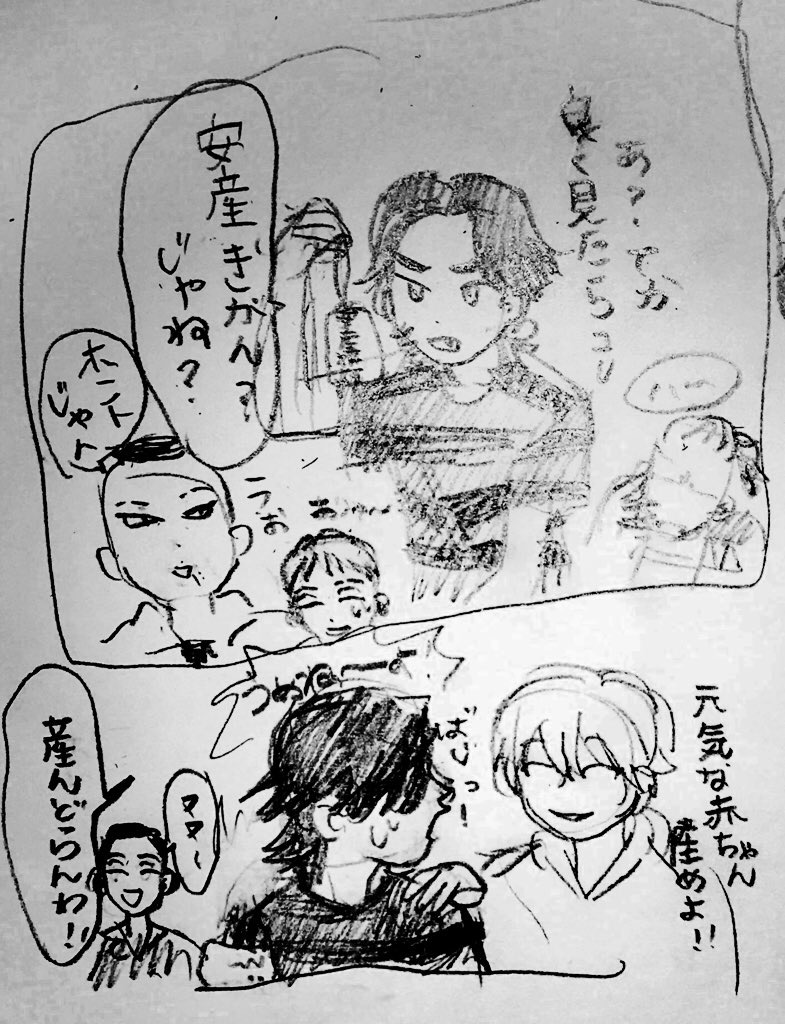 あ?てか
良く見たらコレ
安産
ぎかん?
じゃね?
ハハー
ホント
じゃん
うお
元気な赤ちゃん
産めよ!!
ばじっ!
うめねーよ
ママー
産んどらんわ!!